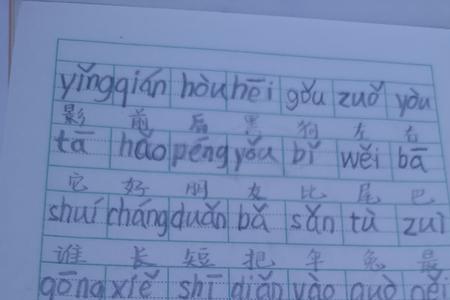 yǐng qián hòu hēi gǒu zuǒ yòu
影 前 后 黑 狗 左 右
tā hǎo péng yǒu bǐ wěi bā
它 好 朋 友 比 尾 巴
shuí cháng duǎn bǎ sǎn tù zuì
谁 长 短 把 伞 兔 最
gōng xiě shī diǎn yào guò gěi